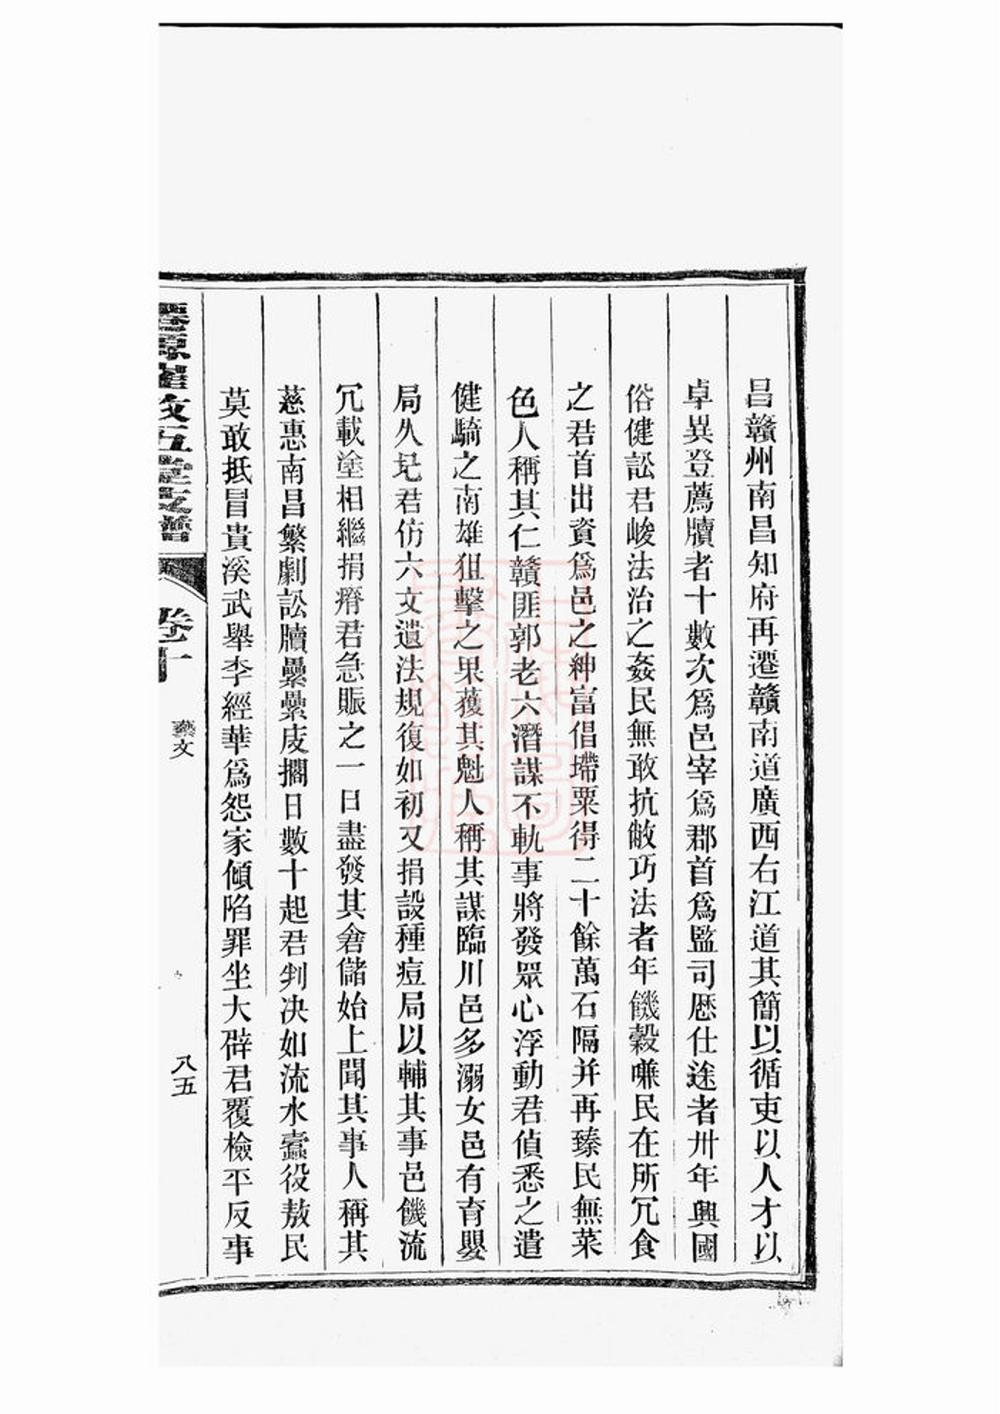 昌贛州南昌知府再遷贛南道廣西右江道其簡以循吏以人才以
卓異登薦牘者十數次爲邑宰爲郡首爲監司歷仕途者卅年興國
俗健訟君峻法治之姦民無敢抗敵巧法者年饑穀嗛民在所冗食
之君首出資爲邑之紳富倡墆粟得二十餘萬石隔并再臻民無菜
色人稱其仁贛匪郭老六潛謀不軌事將發眾心浮動君偵悉之遣
健騎之南雄狙擊之果獲其魁人稱其謀臨川邑多溺女邑有育嬰
局久圮君仿六文遺法規復如初又捐設種痘局以輔其事邑饑流
冗載塗相繼捐瘠君急賑之一日盡發其倉儲始上聞其事人稱其
慈惠南昌繁劇訟牘纍纍庋擱日數十起君判决如流水蠹役敖民
莫敢抵冒貴溪武舉李經華爲怨家傾陷罪坐大辟君覆檢平反事
卷十
藝文
八五